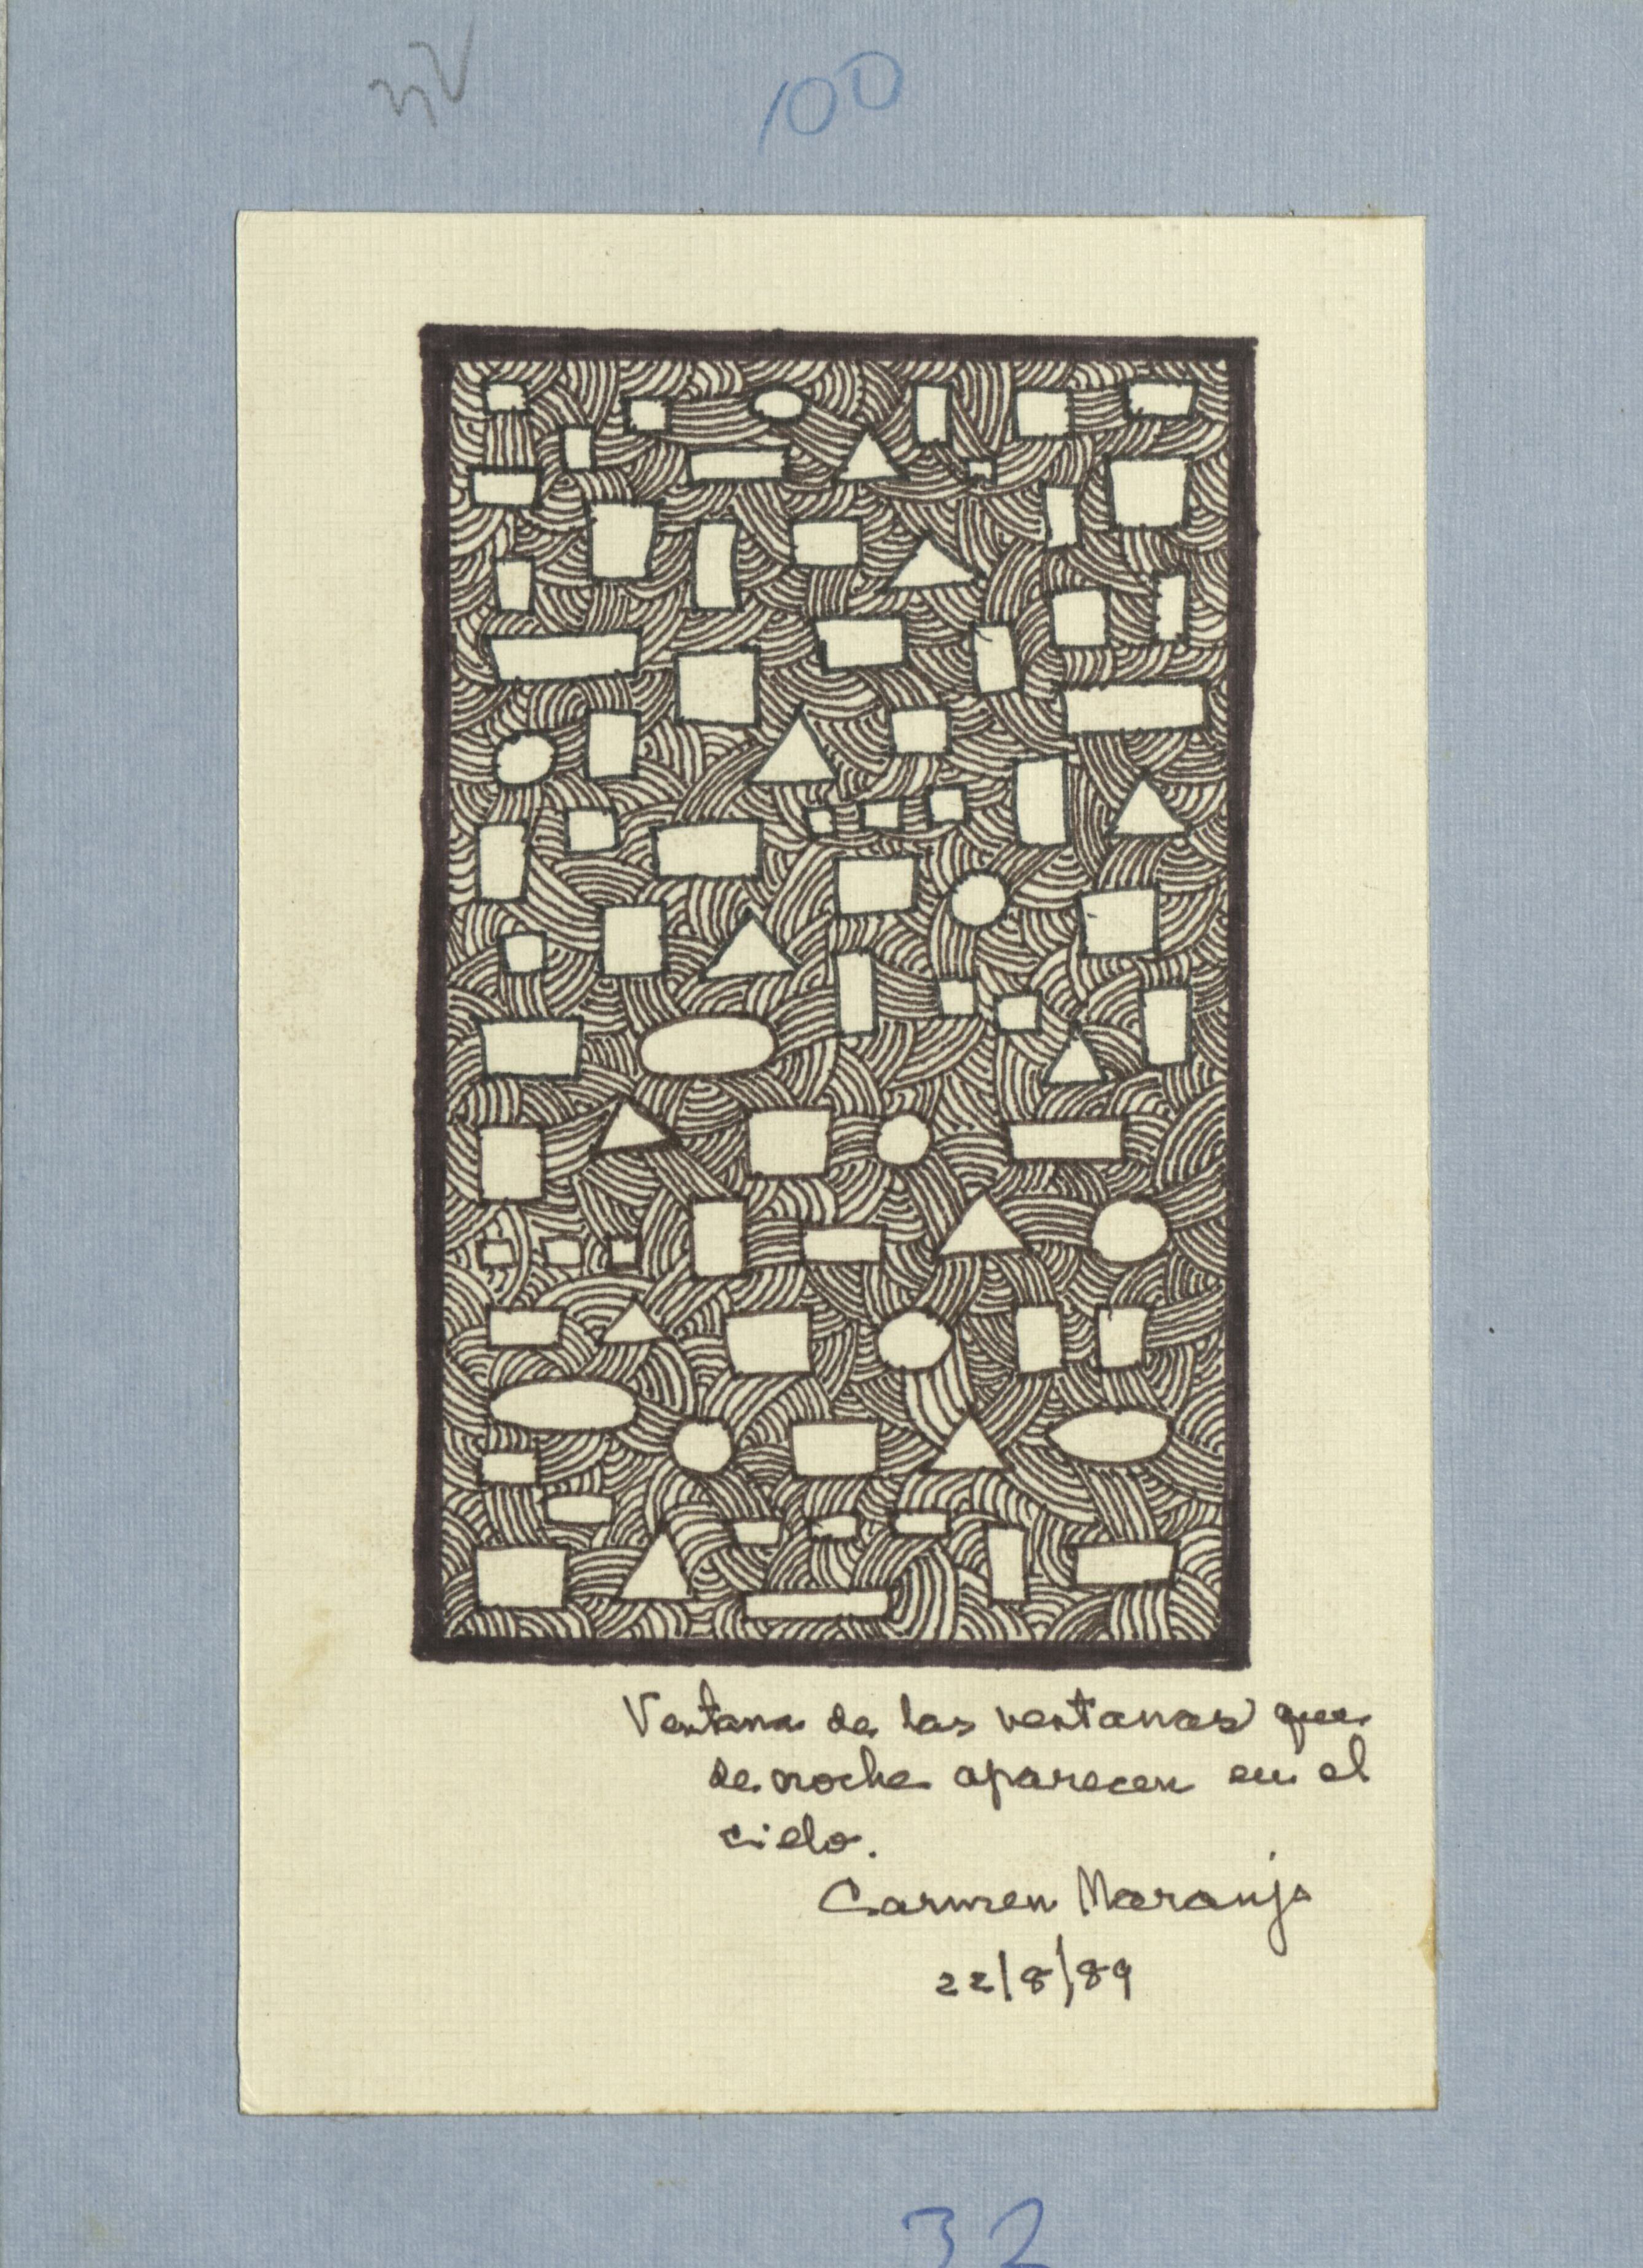 100
Ventana de las ventanas que
de noche aparecen en el
cielo.
Carmen Naranjo
22/8/89
32